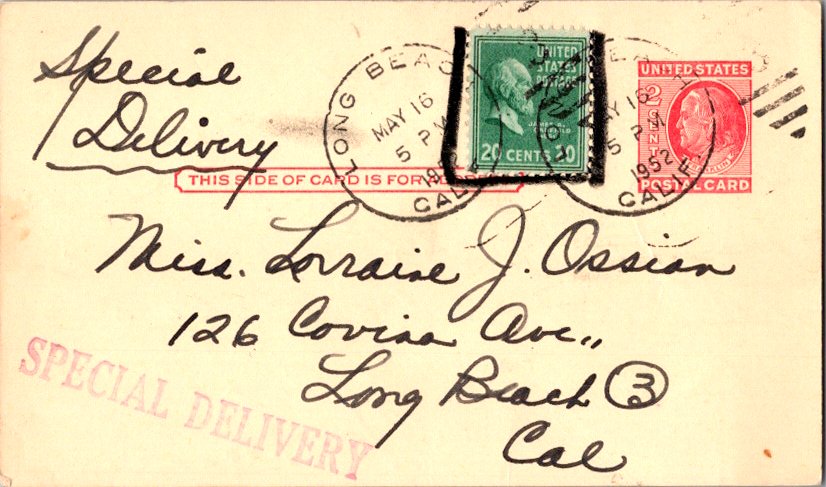 Special
Delivery
LONG BEACH
MAY 16
5 PM
CALIF
UNITED
STATES
POSTAGE
JAMES A.
GARFIELD
20 CENTS 20
MAY 16
5 PM
1952
CALIF
UNITED STATES
2 CENTS
POSTAL CARD
THIS SIDE OF CARD IS FOR
Miss. Lorraine J. Ossian
126 Covina Ave.,
Long Beach 3
Cal
SPECIAL DELIVERY